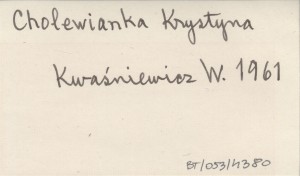 Cholewianka Krystyna
Kwaśniewicz W. 1961
BT/053/4380